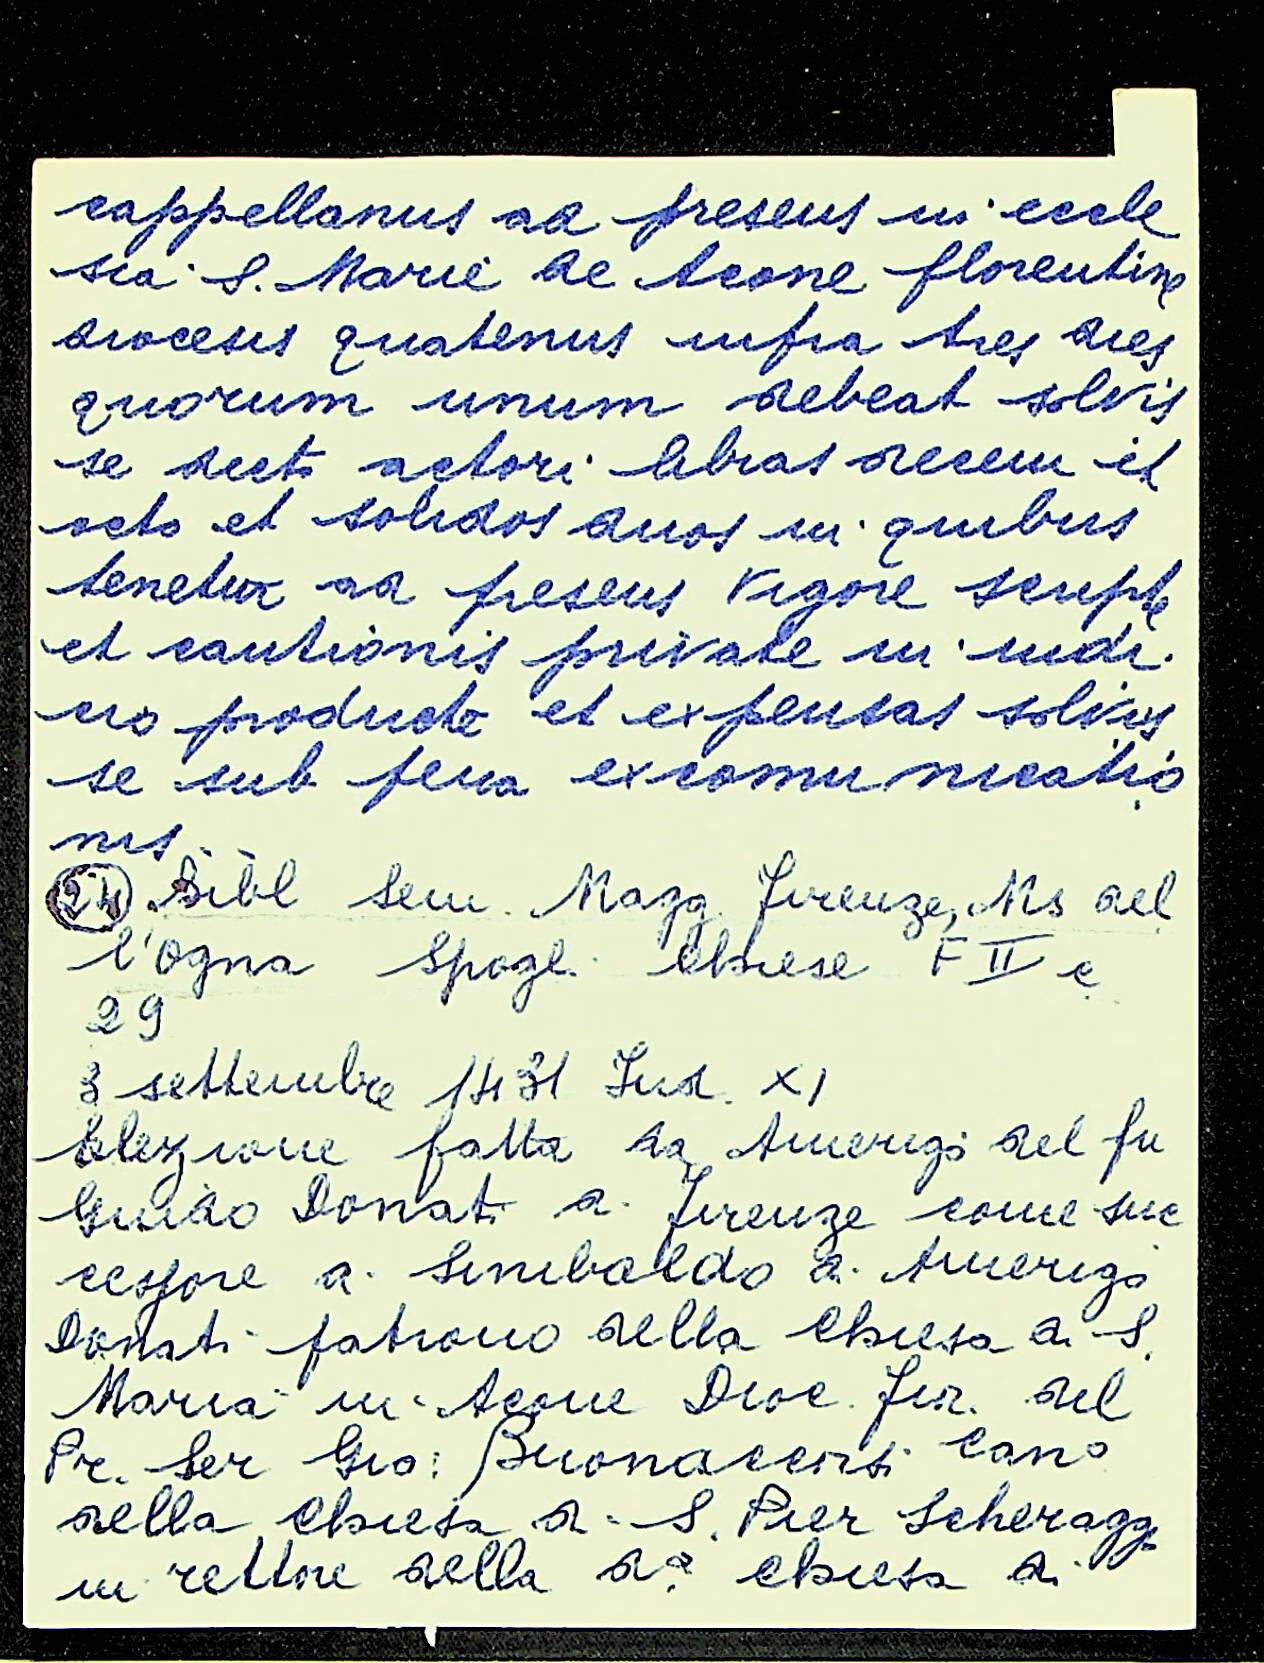 cappellanus ad presens in eccle
sia S. Marie de Acone florentine
diocesis quatenus infra tres dies
quorum unum debeat solvis
se dicto actori libras decem et
octo et solidos duos in quibus
tenetur ad presens vigore scripte
et cautionis private in iudi
cio producte et expensas solvis
se sub pena excomunicatio
nis.
(24) Bibl Sem. Magg. Firenze, Ms del
l'Ogna Spogl. Chiese F II c
29
3 settembre 1431 Ind. XI
Elezione fatta da Amerigo del fu
Guido Donati di Firenze come suc
cessore di Sinibaldo di Amerigo
Donati patrono della Chiesa di S.
Maria in Acone Dioc. Fior. del
Pr. Ser Gio: Buonaccorsi Cano
della Chiesa di S. Pier Scheragg
in rettore della da chiesa di